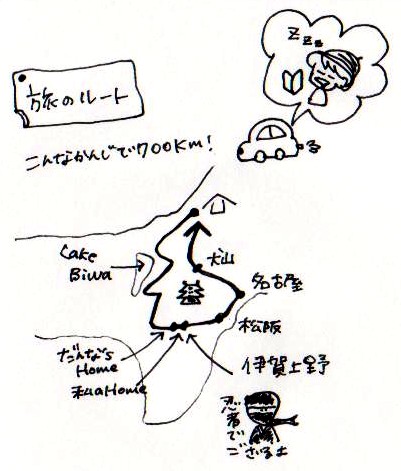 zzz
旅のルート
こんなかんじで700Km!
Lake
Biwa
犬山
名古屋
松阪
伊賀上野
だんなs
Home
私のHome
忍者で
ござるよ